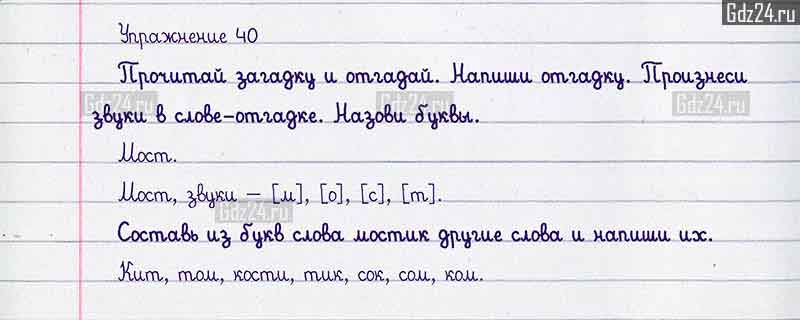 Gdz24.ru
Упражнение 40
Прочитай загадку и отгадай. Напиши отгадку. Произнеси
Gdz24.ru Gdz24.ru Gdz24.ru
звуки в слове-отгадке. Назови буквы.
Мост.
Мост, звуки – [м], [о], [с], [т].
Gdz24.ru
Составь из букв слова мостик другие слова и напиши их.
Кит, том, кости, тик, сок, сом, ком.